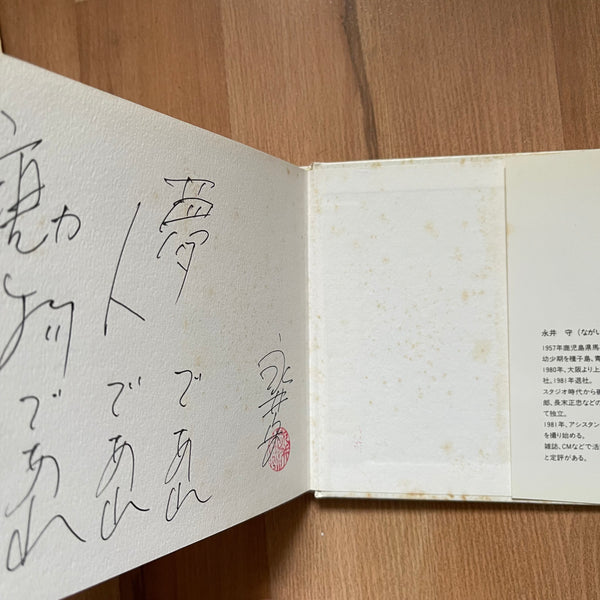 夢であれ
人であれ
動物であれ
永井守
永井 守(ながい
1957年鹿児島県馬
幼少期を種子島、青
1980年、大阪より上
社。1981年退社。
スタジオ時代から
部、長末正忠などの
て独立。
1981年、アシスタン
を撮り始める。
雑誌、CMなどで活
と定評がある。